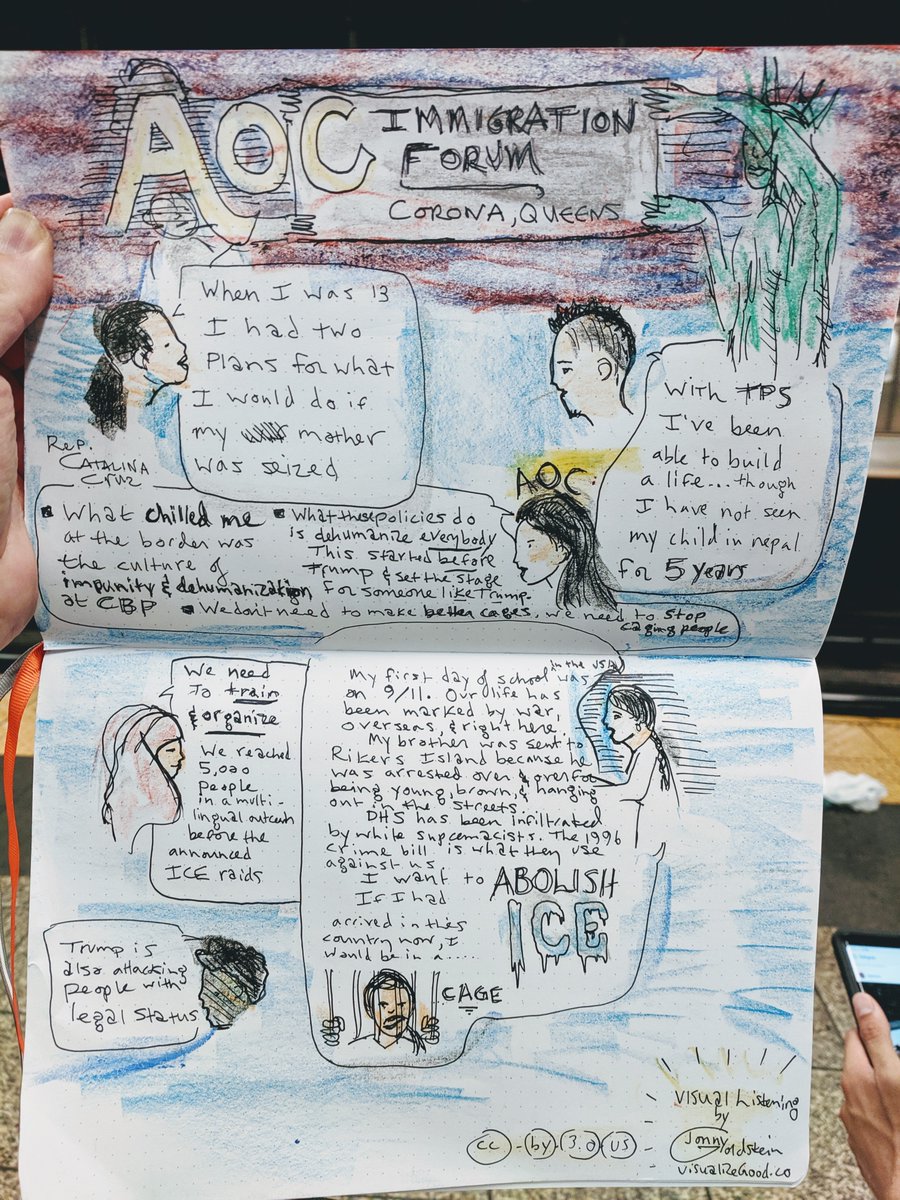 AOC
IMMIGRATION
FORUM
CORONA, QUEENS
When I was 13
I had two
Plans for what
I would do if
my mother
was seized
Rep.
CATALINA
CRUZ
With TPS
I've been
able to build
a life... though
I have not seen
my child in nepal
for 5 years
AOC
What chilled me
at the border was
the culture of
impunity & dehumanization
at CBP
What these policies do
is dehumanize everybody
This started before
Trump & set the stage
for someone like Trump.
We don't need to make better cages, we need to stop
caging people
We need
To train
& organize
We reached
5,000
people
in a multi-
lingual outreach
before the
announced
ICE raids
My first day of school in the USA was
on 9/11. Our life has
been marked by war,
overseas, & right here.
My brother was sent to
Rikers Island because he
was arrested over & over for
being young, brown, & hanging
out in the streets.
DHS has been infiltrated
by white supremacists. The 1996
crime bill is what they use
against us
I want to ABOLISH
ICE
If I had
arrived in this
country now, I
would be in a.....
CAGE
Trump is
also attacking
people with
legal status
Visual Listening
by
Jonny Goldstein
visualizeGood.co
cc - by - 3.0 US -